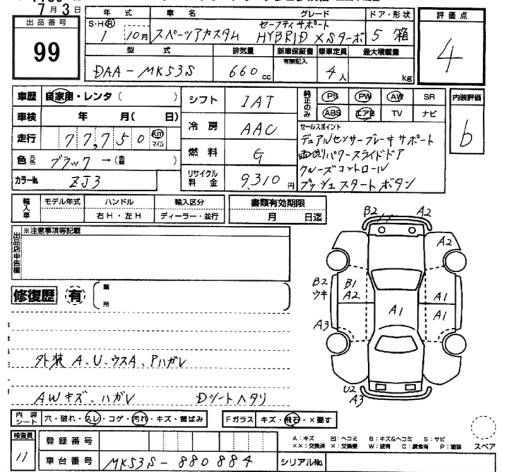 月 3 日
出品番号
99
年式 車名 グレード ドア・形状
S・H・R 1 10月 スペーシアカスタム セーフティサポート HYBRID XSターボ 5 箱
評価点
4
型式 排気量 新車保証書 有無記入 乗車定員 最大積載量
DAA-MK53S 660cc 4人 kg
車歴 自家用・レンタ( )
車検 年 月( 日)
走行 77,750 km マイル
色 元色 ブラック→(
カラーNo. ZJ3
シフト IAT
冷房 AAC
燃料 G
リサイクル料金 9,310円
純正のみ PS PW AW SR
ABS エアB TV ナビ
内装評価
b
セールスポイント
デュアルセンサーブレーキサポート
両側パワースライドドア
クルーズコントロール
プッシュスタートボタン
輸入車 モデル年式 ハンドル 右H・左H 輸入区分 ディーラー・並行
書類有効期限
月 日迄
出品店申告欄 ※注意事項等記載
修復歴 有 箇所
外装 A.U.ウスA.Pハガレ
AWキズ・ハガレ Dシートヘタリ
B2
A2
B2 ウキ
B1 A2
A1
A1
A1
A3
A2
U2
A3
内装シート 穴・破れ・スレ・コゲ・汚れ・キズ・黄ばみ
Fガラス キズ・飛石・×要す
A:キズ 凹:ヘコミ B:キズ&ヘコミ S:サビ
××:交換済 ×:要交換 W:波有 C:腐食有 P:塗装
スペア
検査員 11
登録番号
車台番号 MK53S-880884
シリアルNo.